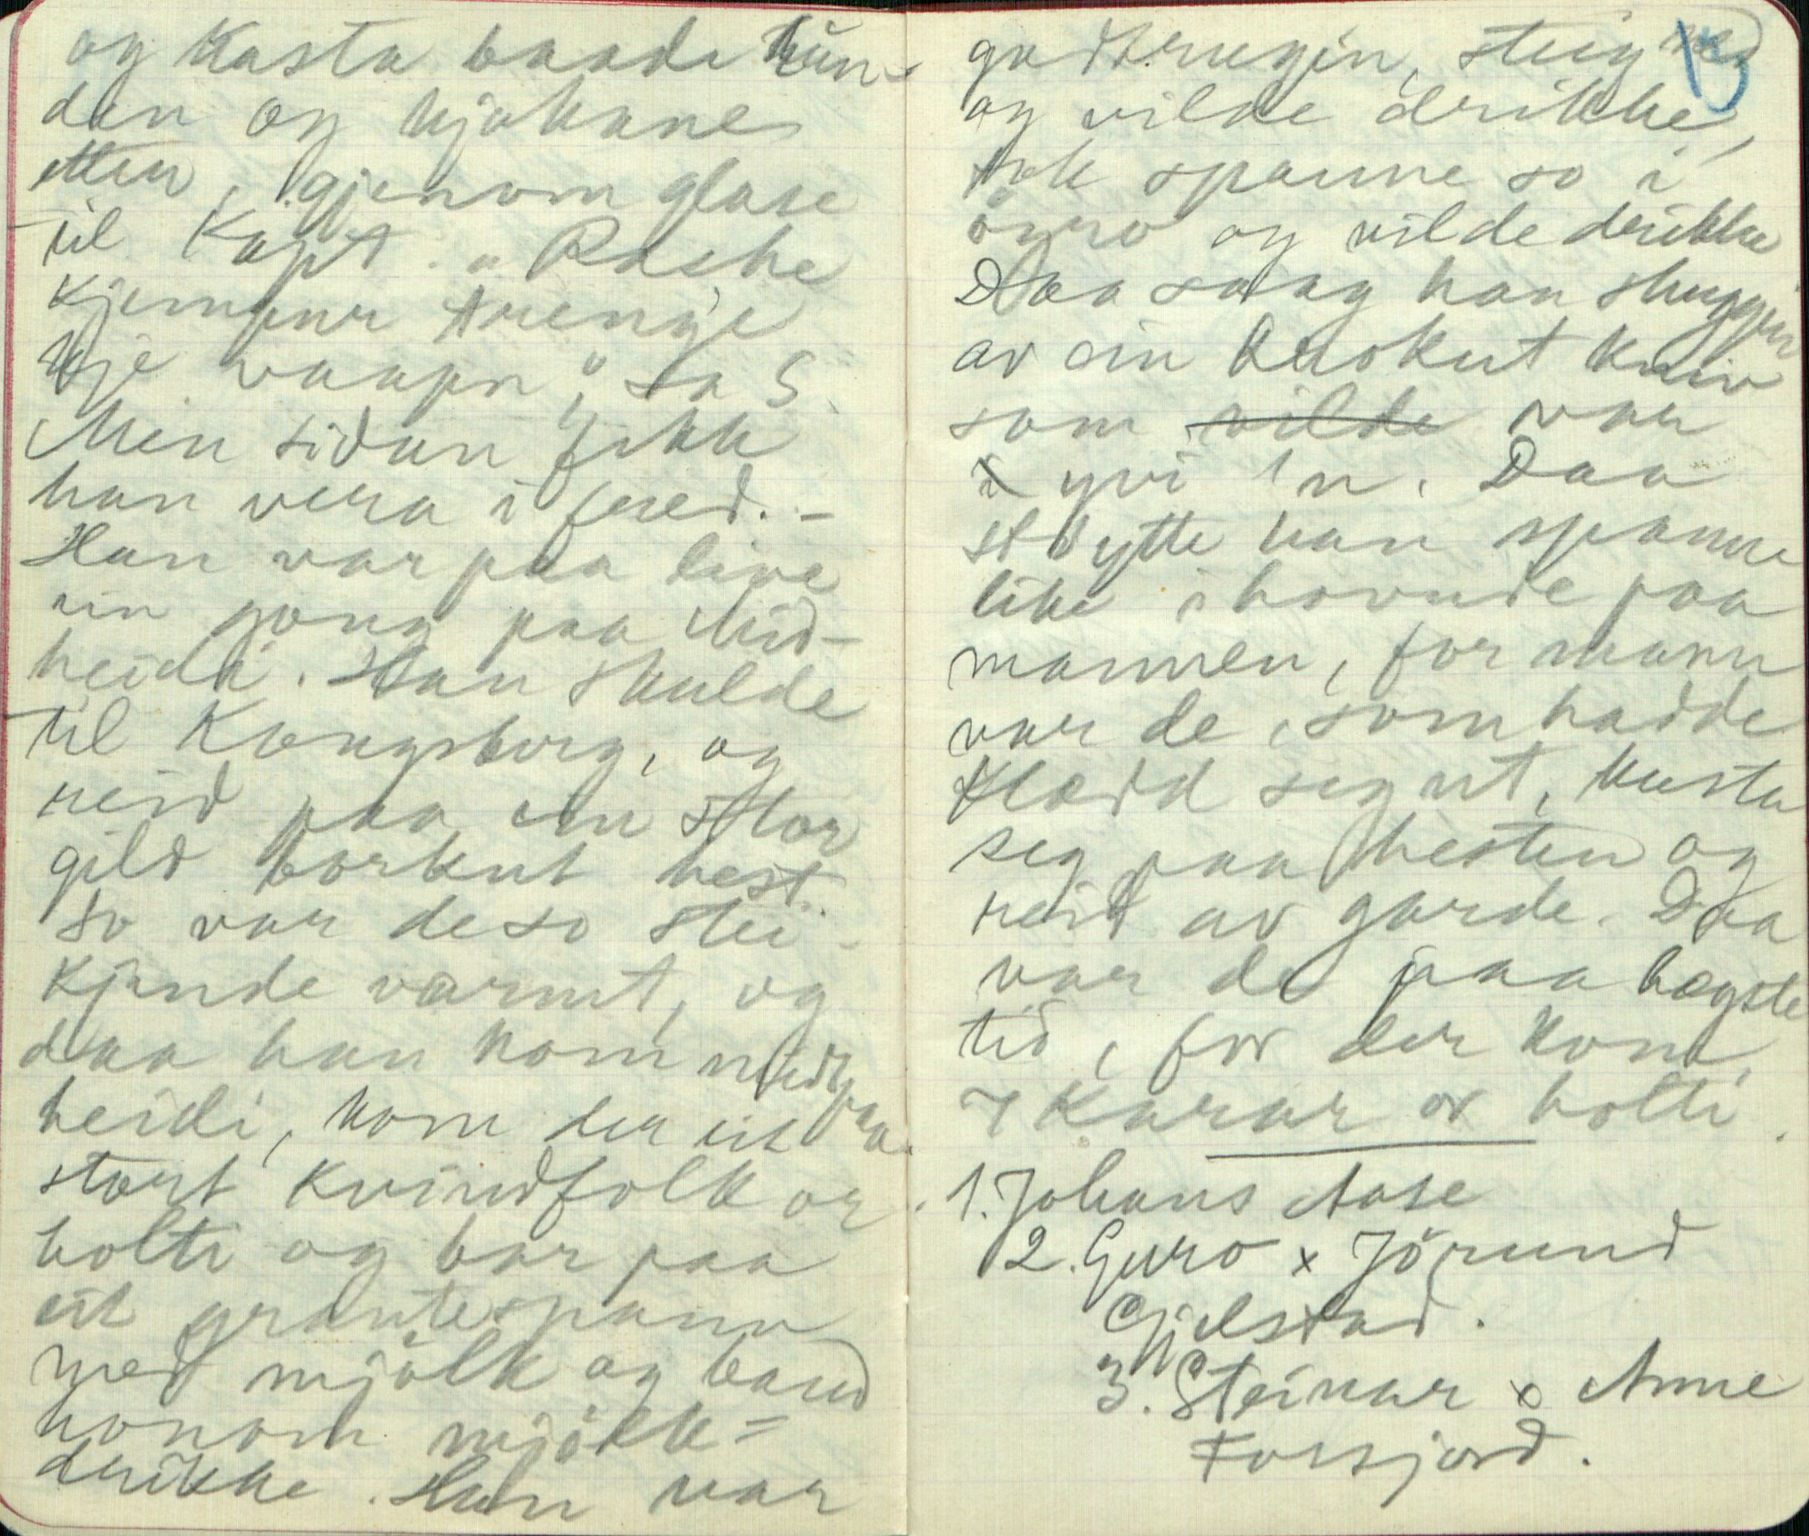 og kasta baade hun-
den og kjøkane
etter, gjenom glase
til Kapt. "Raske
kjempur trenge
kje vaapn", sa S.
Men sidan fekk
han vera i fred. -
Han var paa live
ein gong paa Mid-
heidi. Han skulde
til Kongsberg, og
reid paa ein stor
gild borkut hest.
So var de so stei-
kjande varmt, og
daa han kom midt paa
heidi, kom der eit
stort kvindfolk or
holti og bar paa
eit
med mjölk og baud
honom mjölk-
drikke. Han var
godtrugin, steig ned
og vilde drikke,
tok spanne so i
öyro og vilde drikke
Daa saag han skuggin
av ein kniv
som vilde var
i yvi 'n. Daa
støytte han spanne
like i hovude paa
mannen, for mann
var de, som hadde
klædd seg ut, kasta
seg paa hesten og
reid av garde. Daa
var de paa høgste
tid, for der kom
7 karar or holti.
1. Johans Aase
2. Guro x Jörund
Gjelstad.
3. Steinar x Anne
Forsjord.